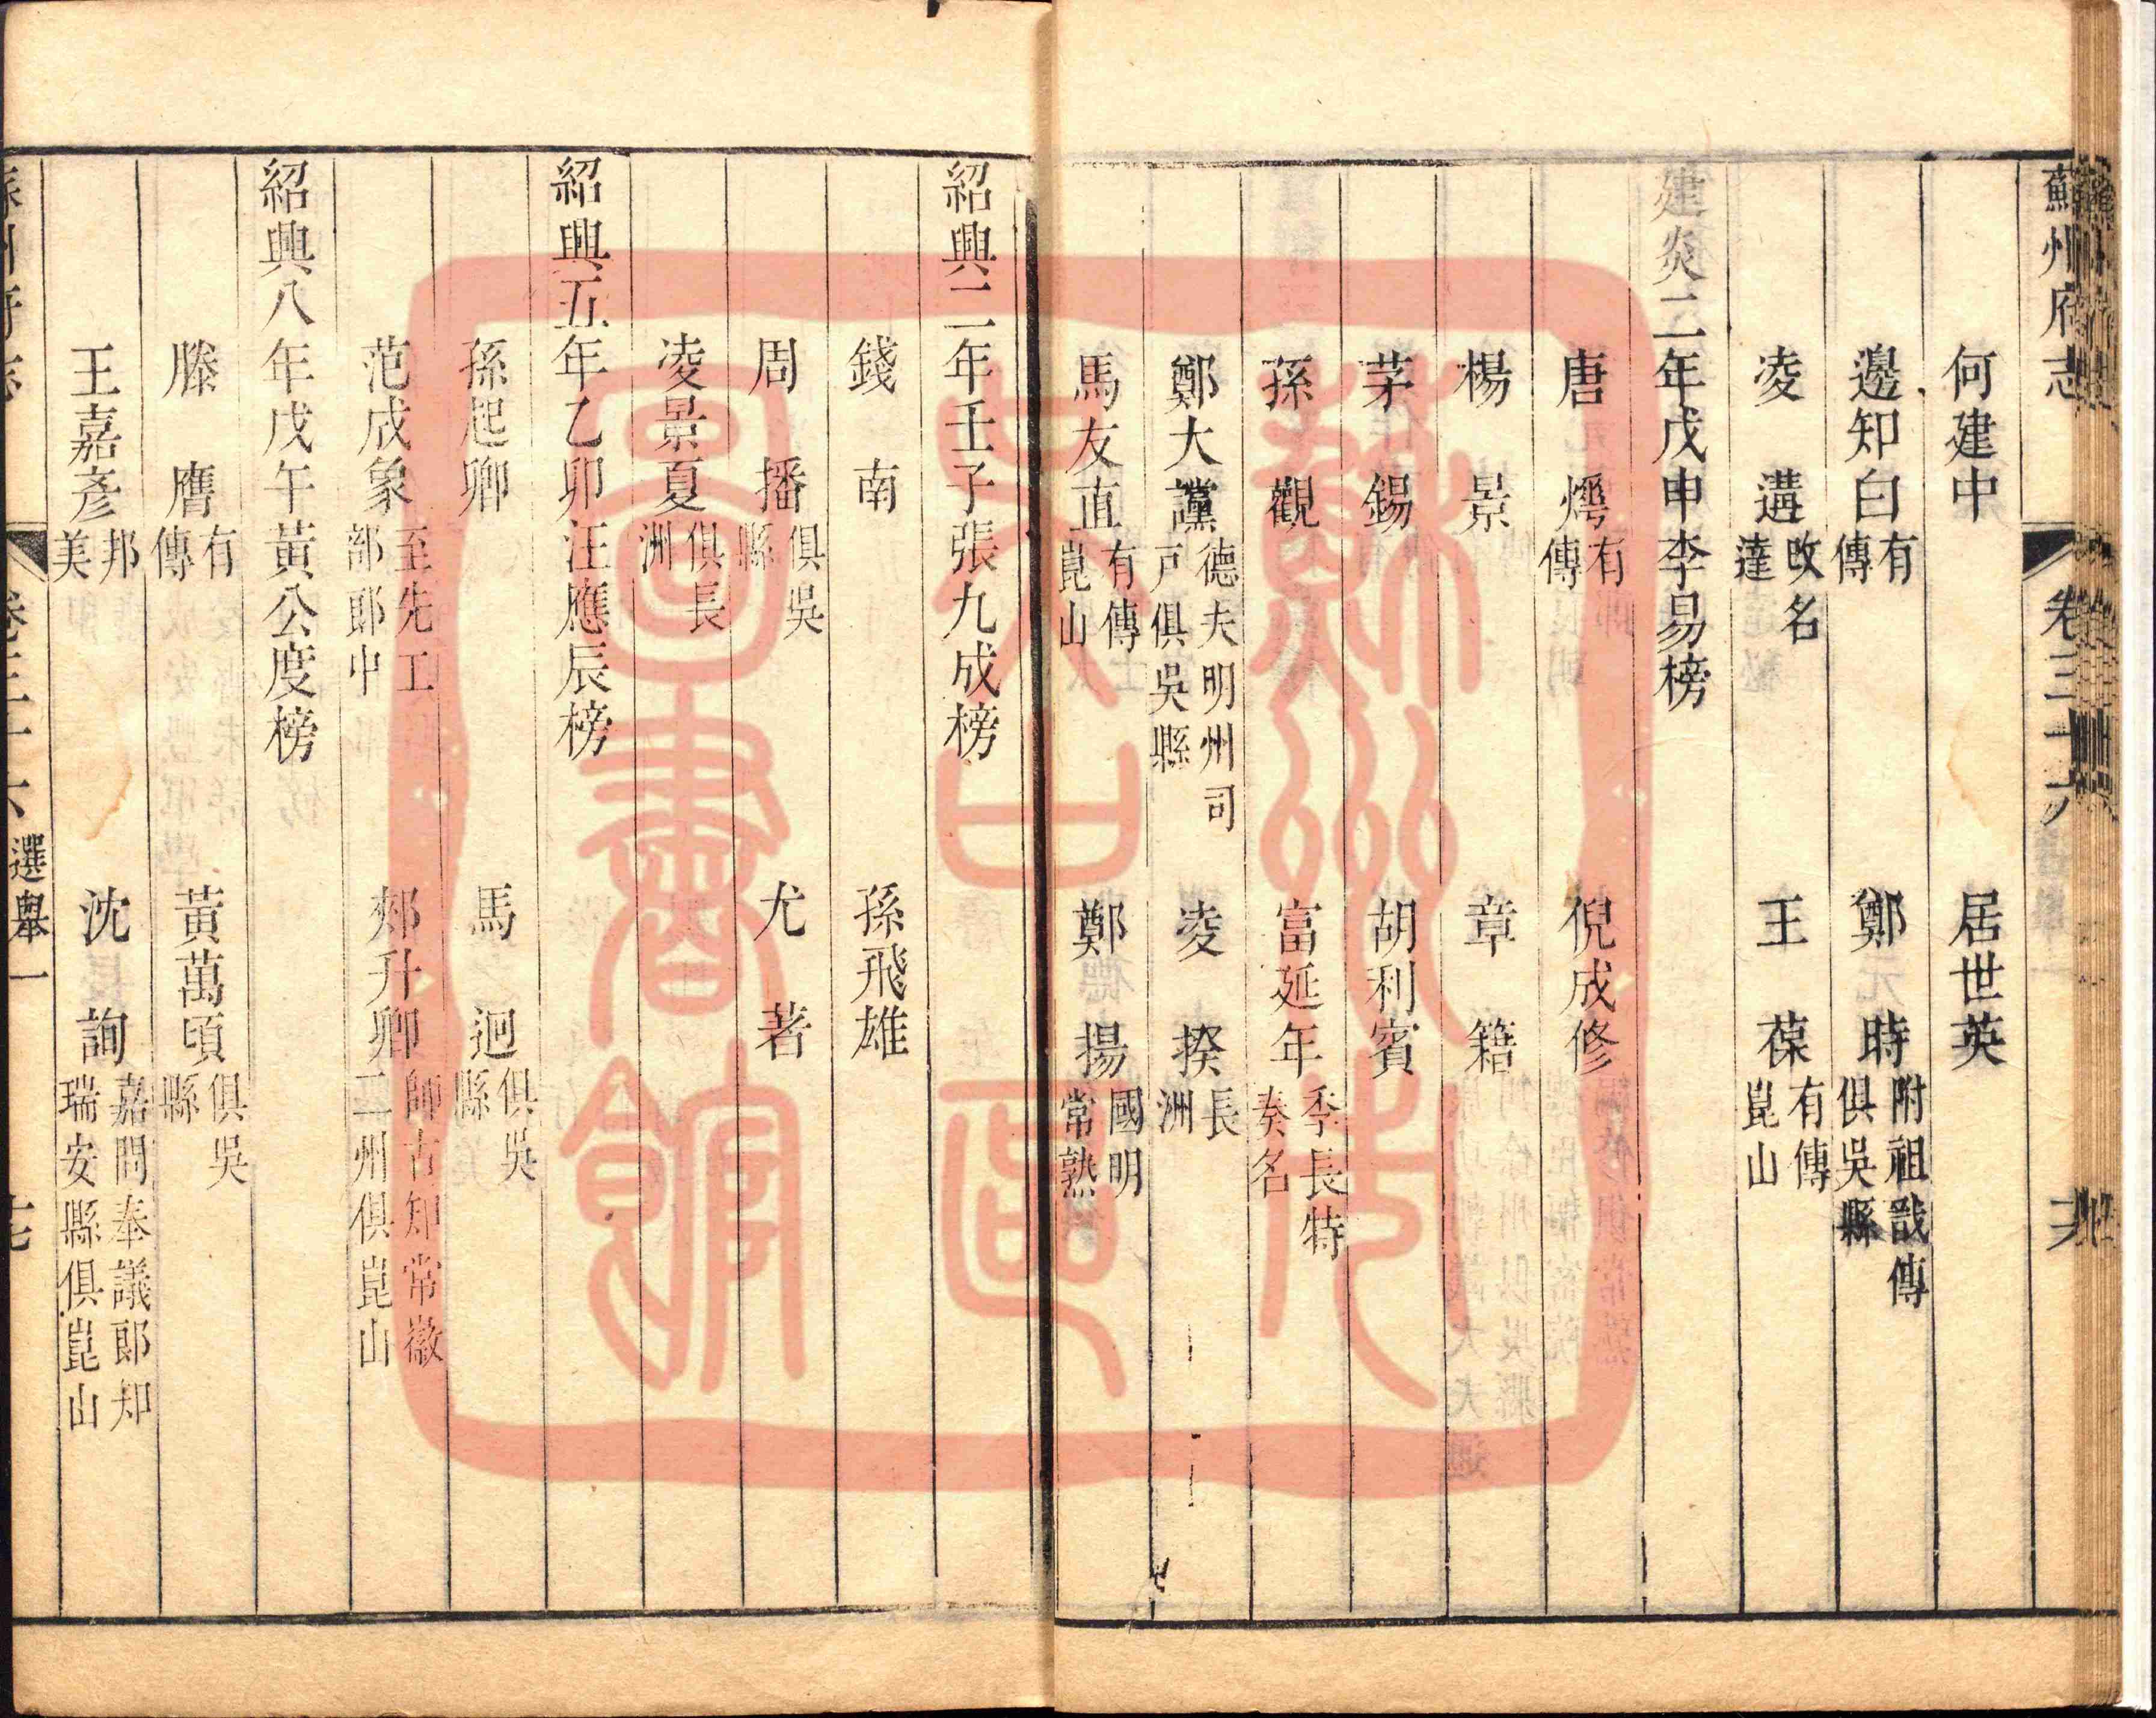 蘇州府志 卷三十六
何建中 居世英
邊知白 有傳 鄭時 附祖戩傳 俱吳縣
凌遘 改名達 王葆 有傳 崑山
建炎二年戊申李易榜
唐㷼 有傳 倪成修
楊景 章籍
茅錫 胡利賓
孫觀 富延年 季長特奏名
鄭大讜 德夫明州司戸俱吳縣 凌揆 長洲
馬友直 有傳 崑山 鄭揚 國明 常熟
紹興二年壬子張九成榜
錢南 孫飛雄
周播 俱吳縣 尤著
凌景夏 俱長洲
紹興五年乙卯汪應辰榜
孫起卿 馬迥 俱吳縣
范成象 至先工部郎中 郟升卿 師古知常徽二州俱崑山
紹興八年戊午黃公度榜
滕膺 有傳 黃萬頃 俱吳縣
王嘉彥 邦美 沈詢 嘉問奉議郎知瑞安縣俱崑山
選舉一
蘇州市文管會圖書館